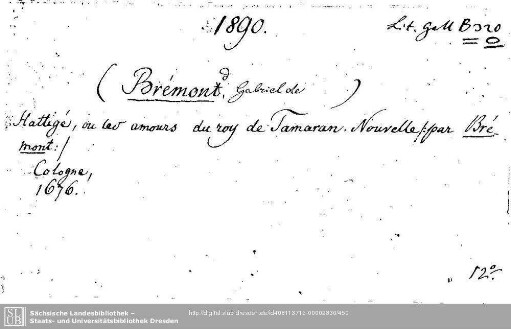 1890.
Lit. Gall B 320
(Brémont, Gabriel de)
Hattigé, ou les amours du roy de Tamaran. Nouvelle /: par Bré
mont :/
Cologne,
1676.
12°.
Sächsische Landesbibliothek –
Staats- und Universitätsbibliothek Dresden